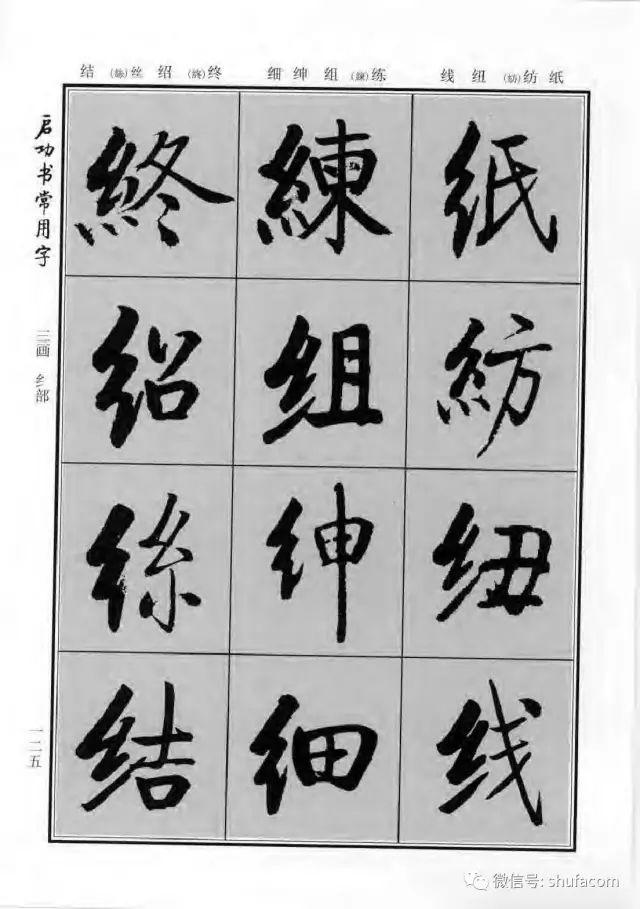 结(絲)丝绍(終)终 细绅组(練)练 线纽(紡)纺纸
启功书常用字
三画 纟部
一二五
終 練 纸
绍 组 紡
絲 绅 纽
结 细 线
微信号: shufacom